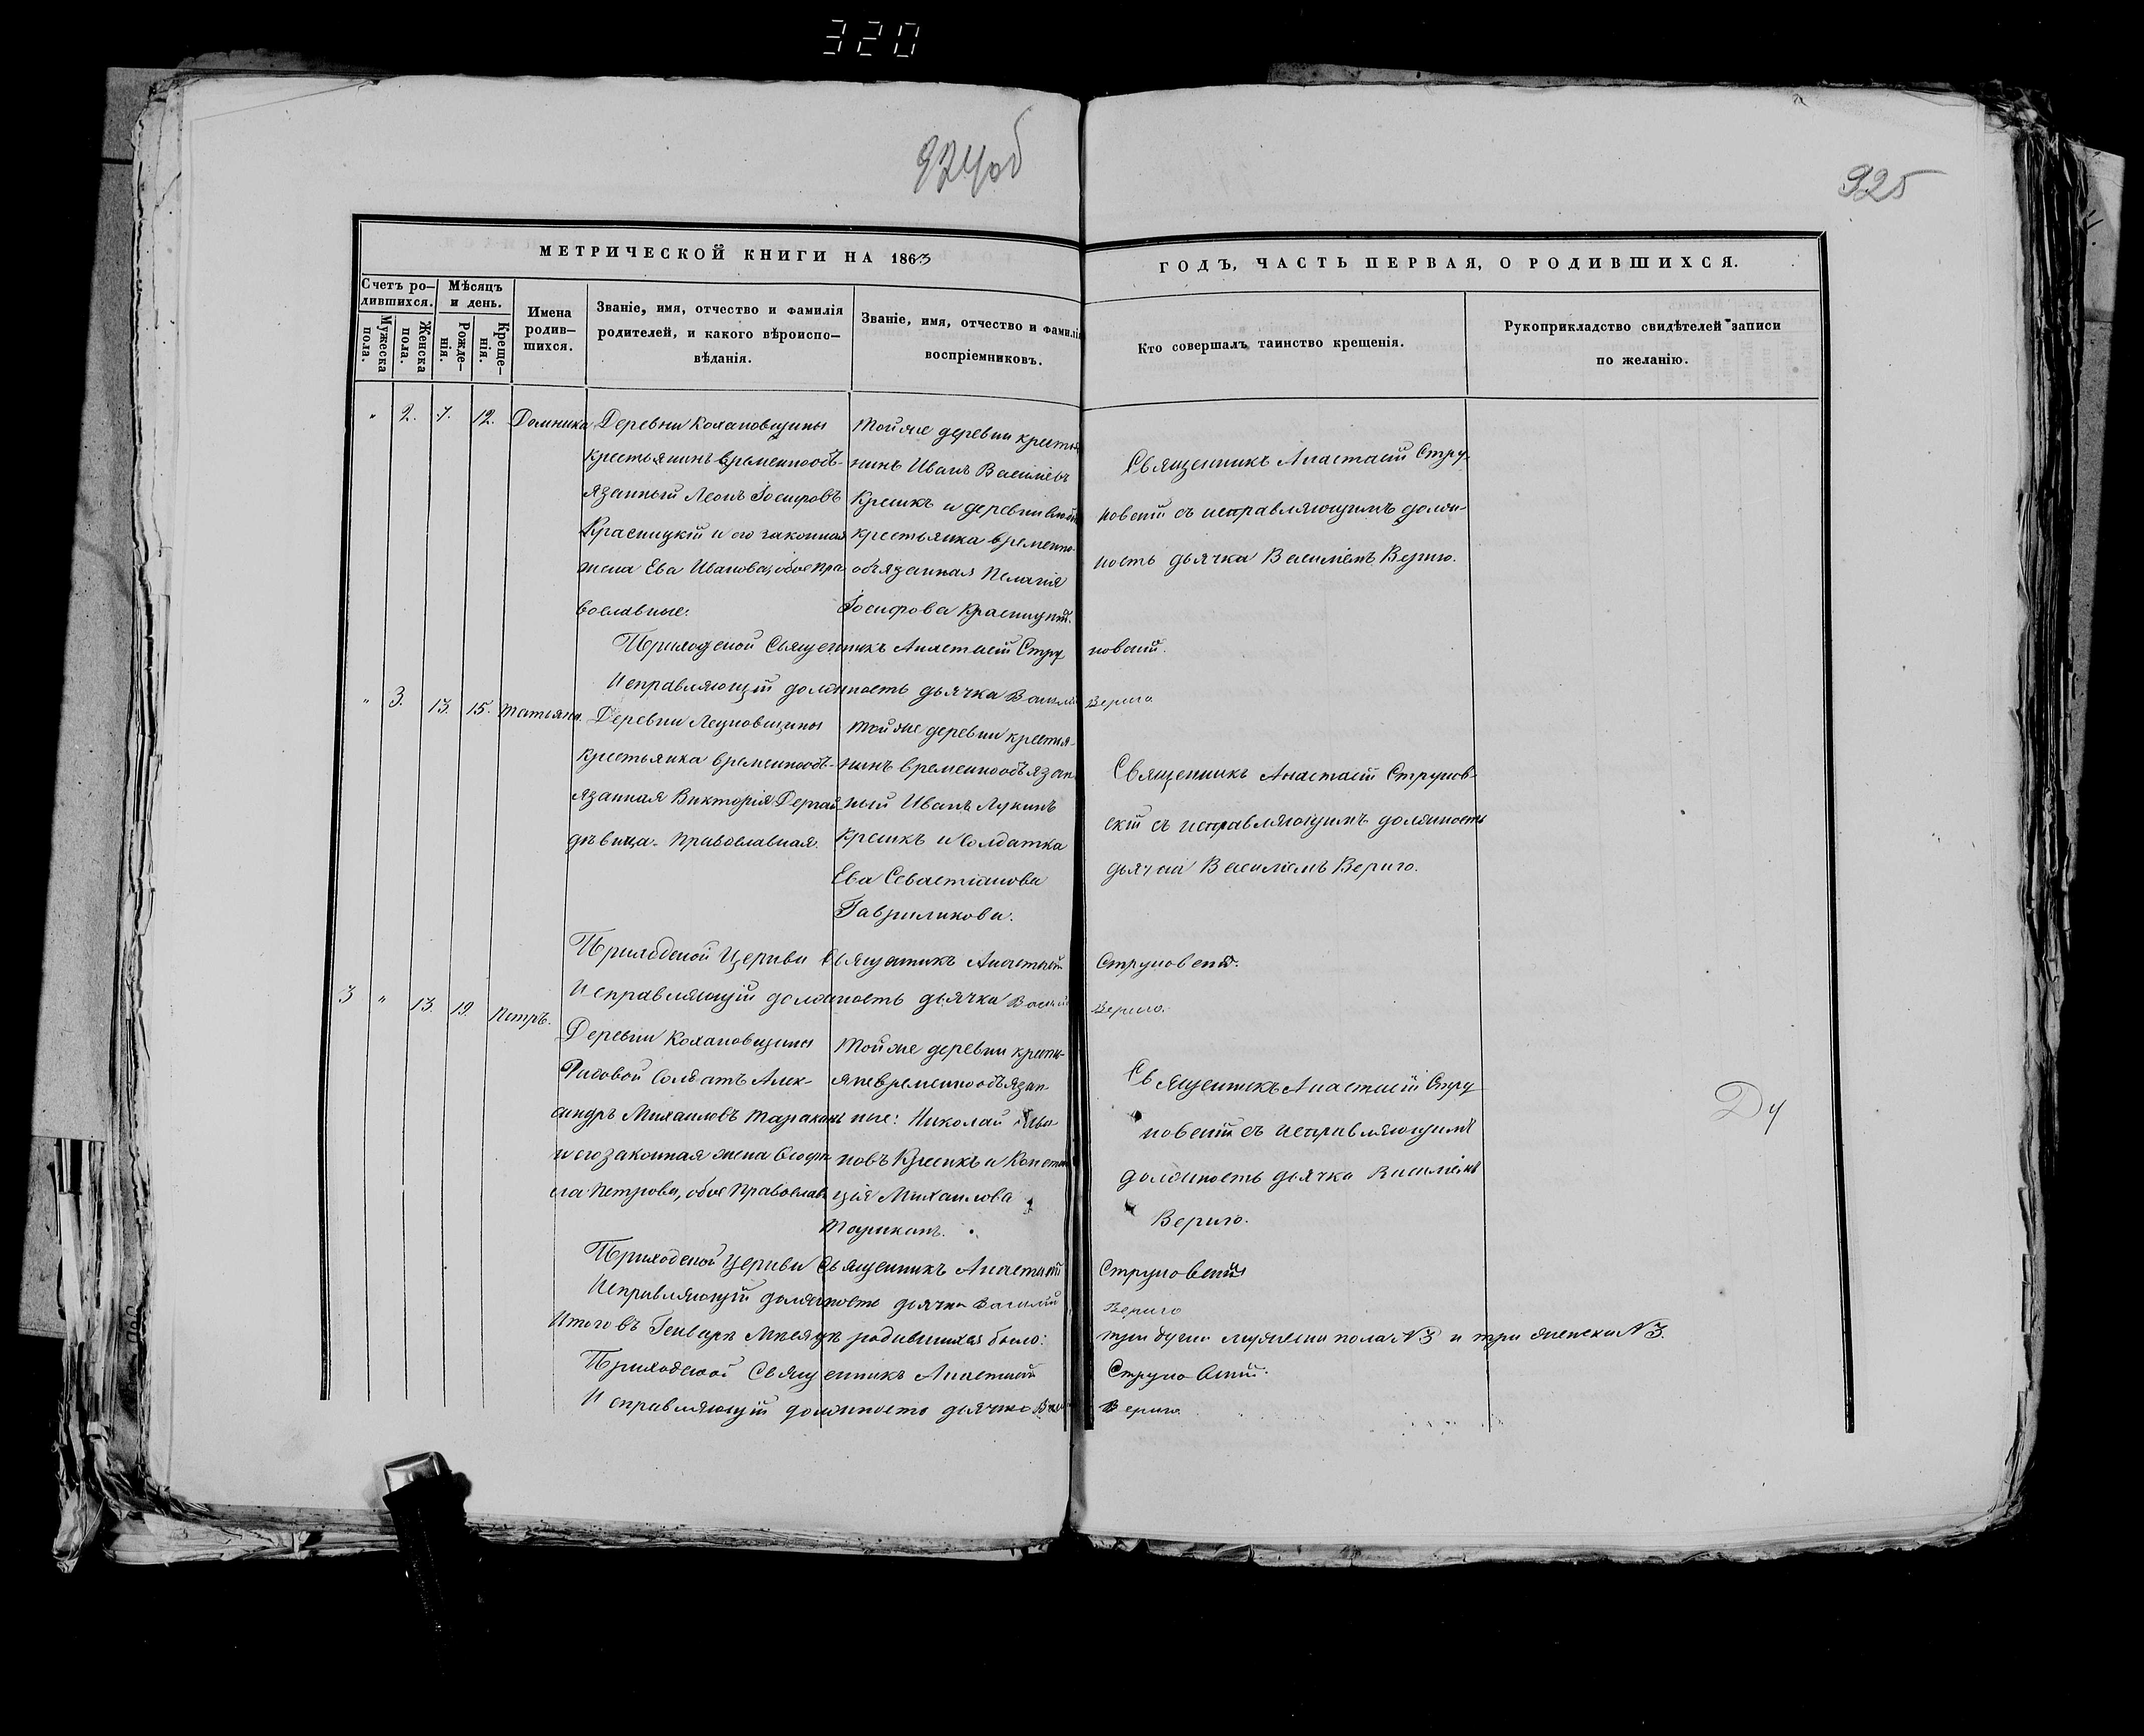 320
924об
925
МЕТРИЧЕСКОЙ КНИГИ НА 1863
ГОДЪ, ЧАСТЬ ПЕРВАЯ, О РОДИВШИХСЯ.
Счетъ ро-
дившихся.
Мужеска
пола.
Женска
пола.
Мѣсяцъ
и день.
Рожде-
нія.
Креще-
нія.
Имена
родив-
шихся.
Званіе, имя, отчество и фамилія
родителей, и какого вѣроиспо-
вѣданія.
Званіе, имя, отчество и фамилія
воспріемниковъ.
Кто совершалъ таинство крещенія.
Рукоприкладство свидѣтелей записи
по желанію.
" 2. 7. 12. Домника
Деревни Кохановщины
крестьянинъ временнооб-
язанный Леонъ Іосифовъ
Красницкій и его законная
жена Ева Иванова, обое пра
вославные.
Той же деревни крестья
нинъ Иванъ Васильевъ
Крешкъ и деревни
крестьянка временно
обязанная Пелагія
Іосифова Красницкій.
Священникъ Анастасій Стру
новскій съ исправляющимъ долж-
ность дьячка Василіемъ Вериго.
Приходской Священникъ Анастасій Стру
новскій.
Исправляющій должность дьячка Василій
Вериго
" 3. 13. 15. Татьяна.
Деревни Лецковщины
крестьянка временнооб-
язанная Викторія
дѣвица. Православная.
Той же деревни крестья-
нинъ временнообязан
ный Иванъ Лукинъ
Крешкъ и солдатка
Ева Севастіанова
Гавриликова.
Священникъ Анастасій Струнов-
скій съ исправляющимъ должность
дьячка Василіемъ Вериго.
Приходской Церкви Священникъ Анастасій
Струновскій.
Исправляющій должность дьячка Василій
Вериго.
3 " 13. 19. Петръ.
Деревни Кохановщины
Рядовой Солдатъ Алек-
сандръ Михаиловъ Тараканъ
и его законная жена
Петрова, обое Православ
Той же деревни крестья-
яне временнообязан
ные: Николай Ива
новъ Крешкъ и Констан
ція Михаилова
Тараканъ.
Священникъ Анастасій Стру
новскій съ исправляющимъ
должность дьячка Василіемъ
Вериго.
Приходской Церкви Священникъ Анастасій
Струновскій
Исправляющій должность дьячка Василій
Вериго
Итого въ Генварѣ Мѣсяцѣ родившихся было:
три души мужеска пола №3 и три женска №3.
Приходской Священникъ Анастасій
Струновскій.
Исправляющій должность дьячка Вас
Вериго.